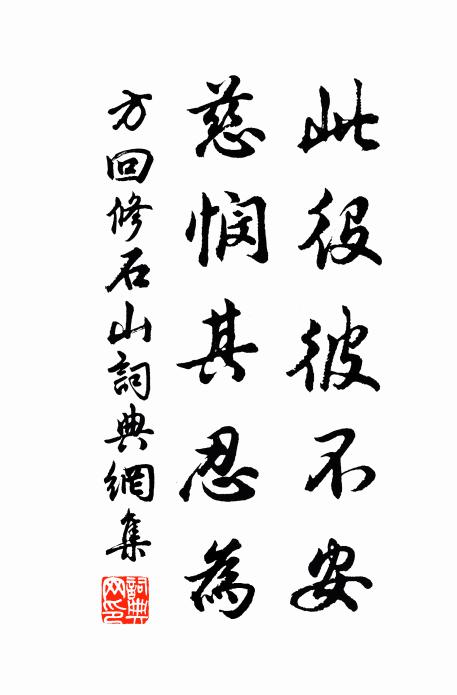 此役彼不安
慈悯其忍為
方回修石山詞典網集
詞典網印